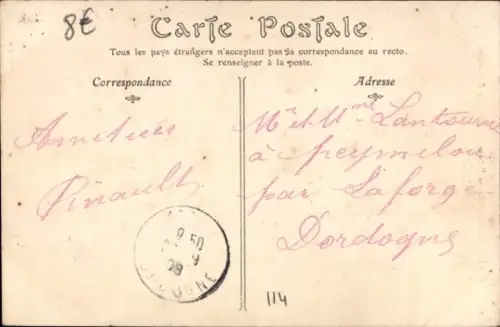 8€
Carte Postale
Tous les pays étrangers n'acceptent pas la correspondance au recto.
Se renseigner à la poste.
Correspondance
Adresse
Amitiés
Pinault
Mr et Mme Lantourne
à Peymilou
par Laforge
Dordogne
9 50
9
28
DORDOGNE
114